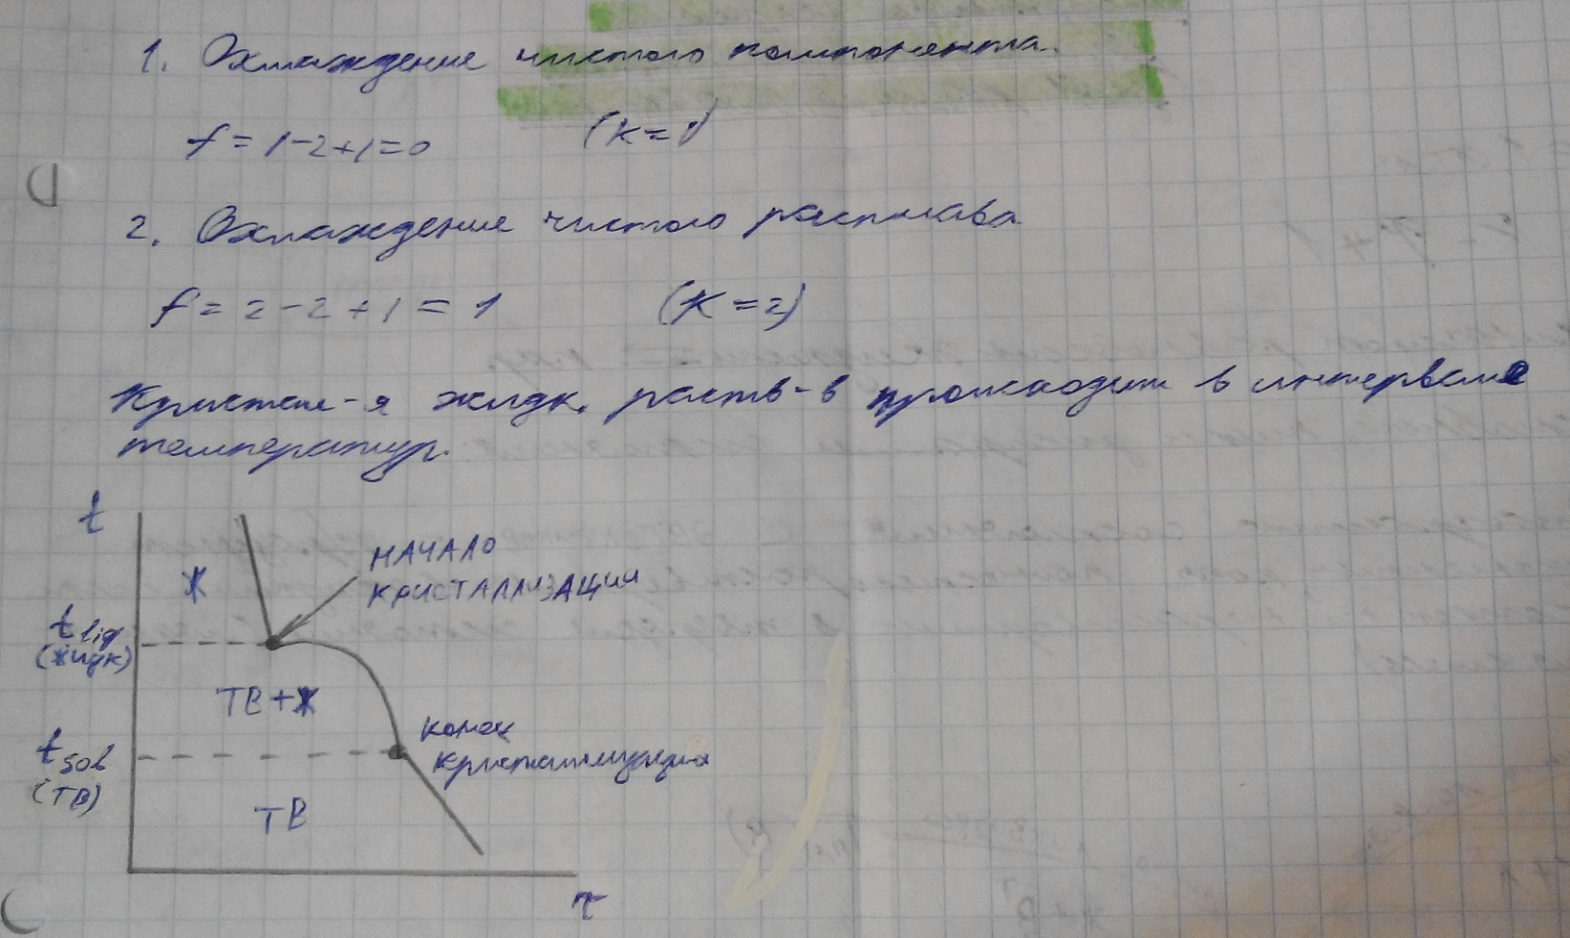 1. Охлаждение чистого компонента.
f = 1-2+1=0 (к=1)
2. Охлаждение чистого расплава
f = 2-2+1 = 1 (К=2)
Кристал-я жидк. раств-в происходит в интервале
температур.
t
Ж
НАЧАЛО
КРИСТАЛЛИЗАЦИИ
t liq
(жидк)
ТВ+Ж
конец
кристаллизации
t sol
(ТВ)
ТВ
τ